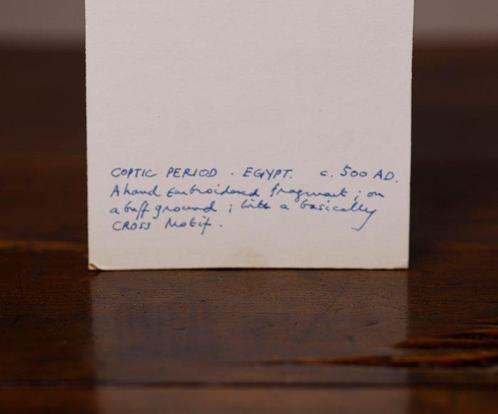 COPTIC PERIOD . EGYPT. c. 500 AD.
A hand embroidered fragment ; on
a buff ground ; with a basically
CROSS Motif .